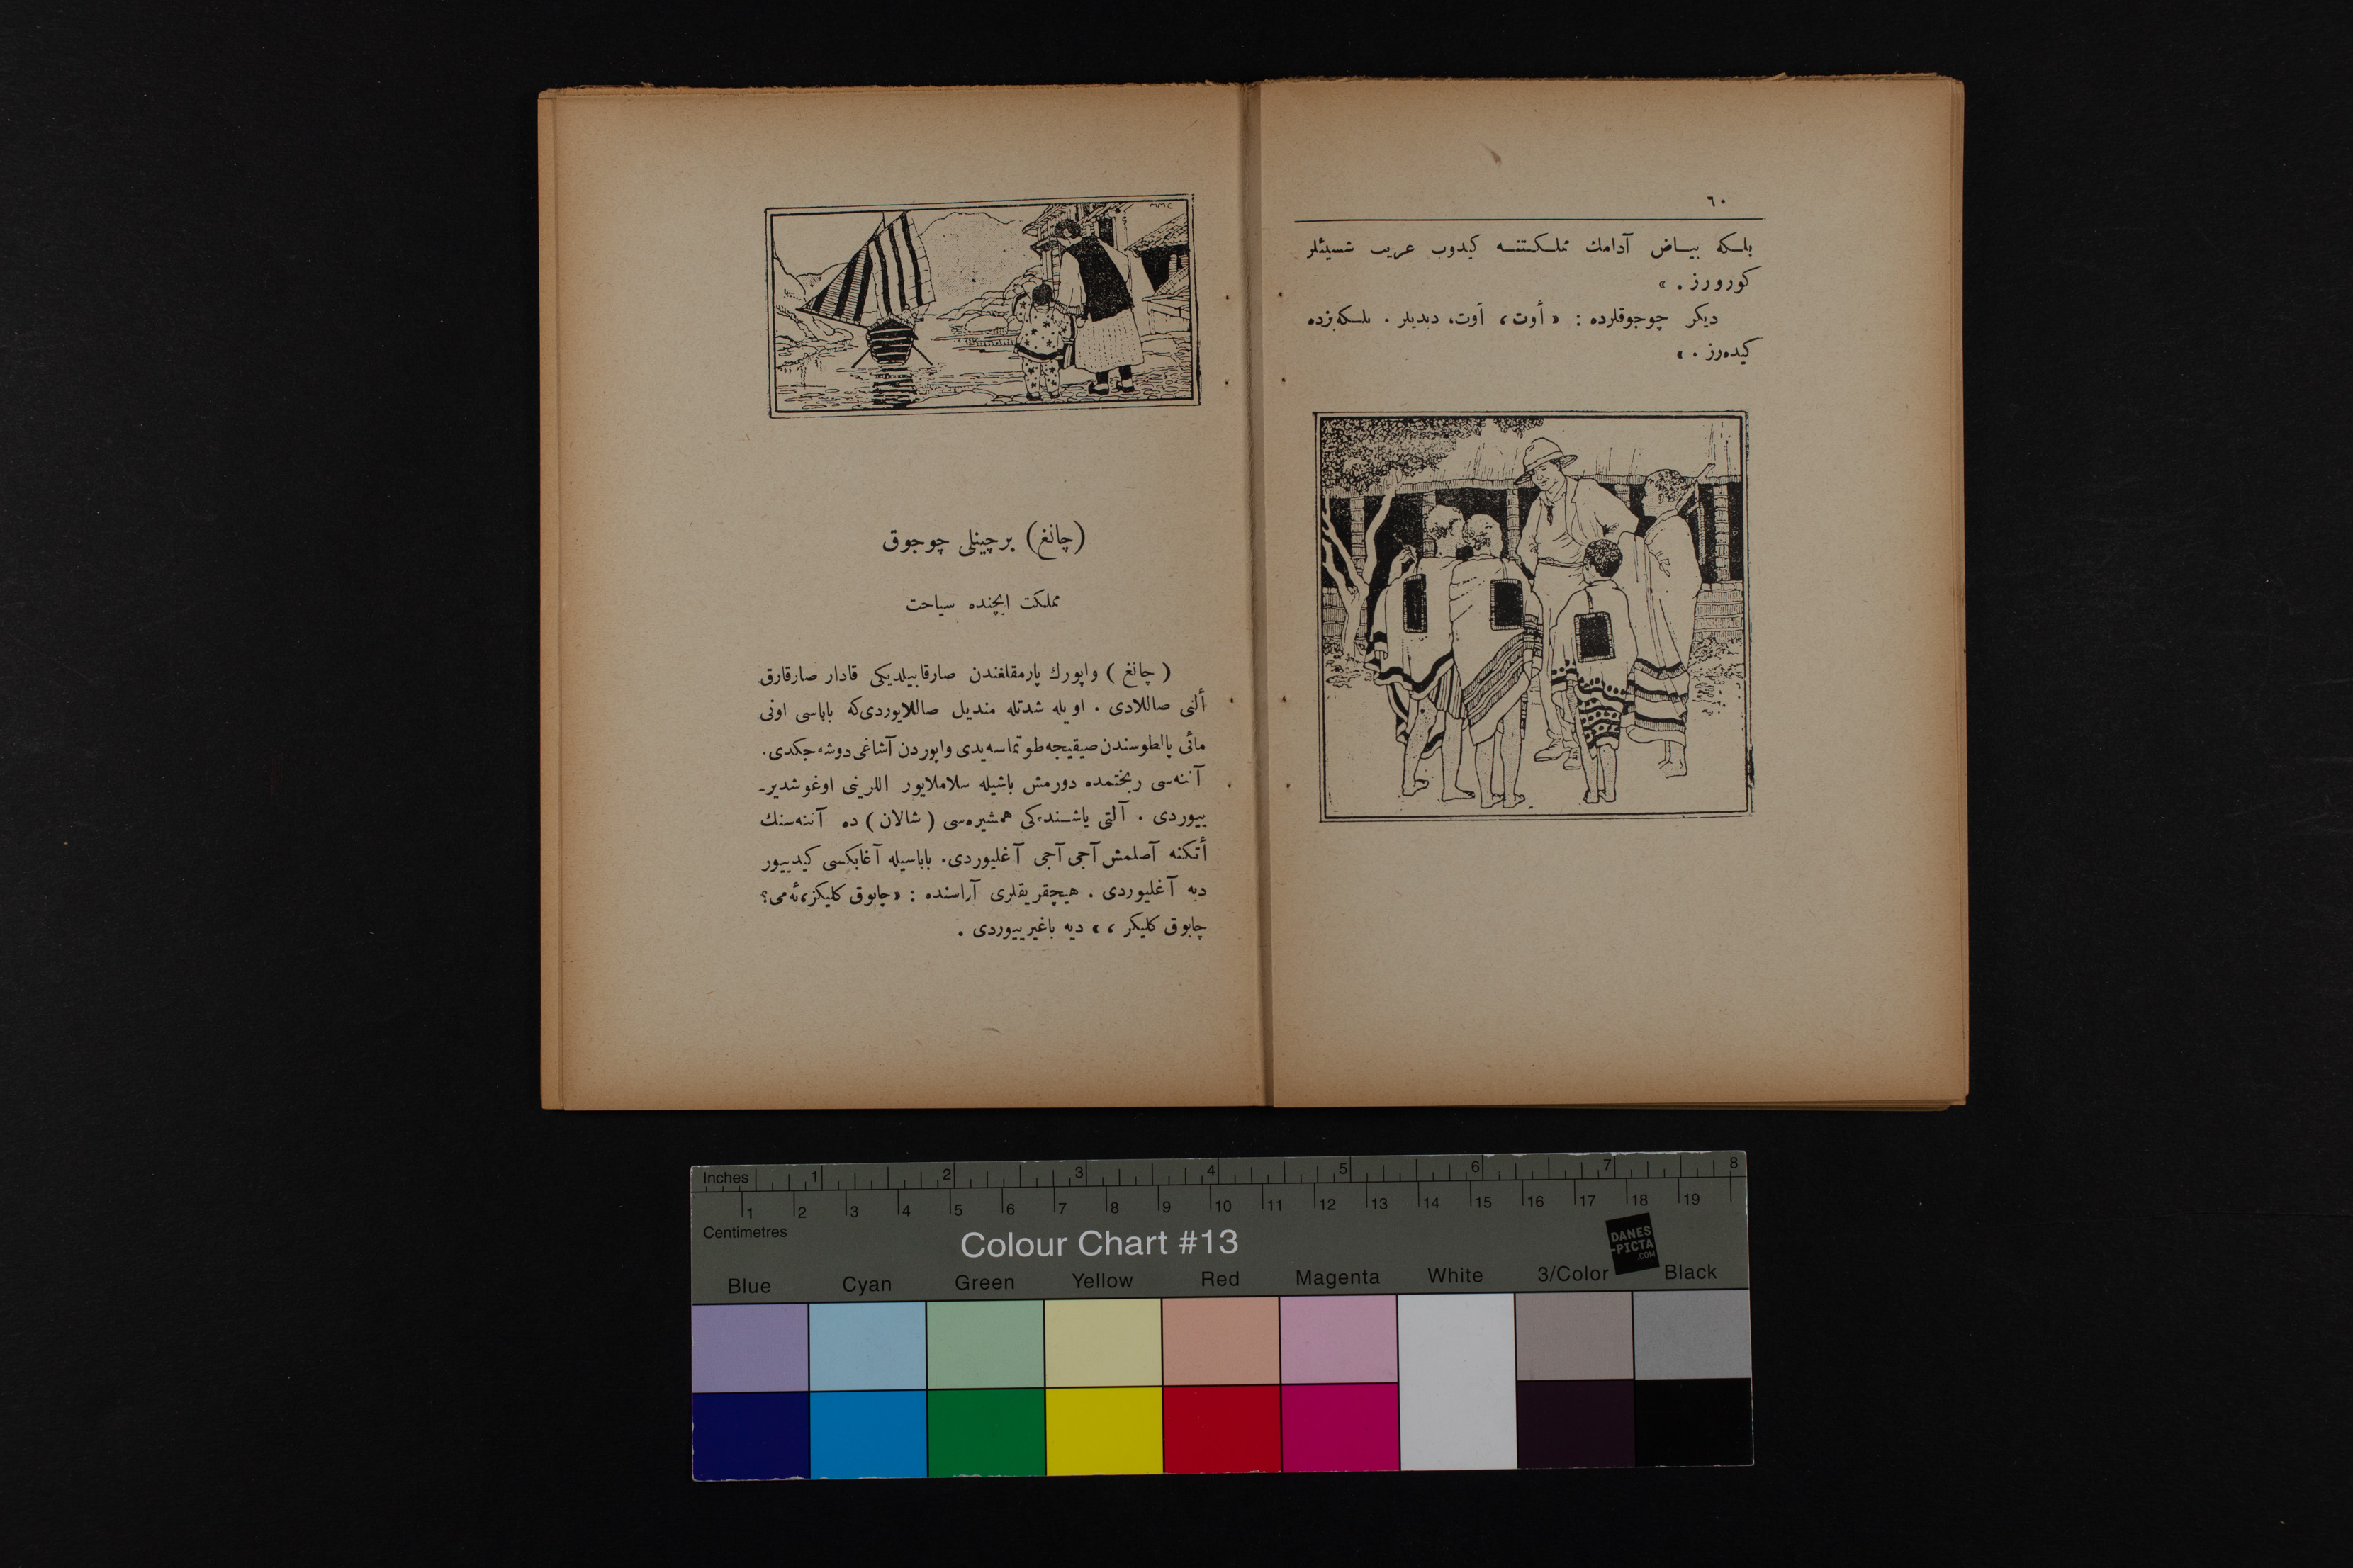 ٦٠
بلـكه بيـاض آدامك مملـكـتنـه كيدوب غريب شـيئلر
كورورز . »
ديكر چوجوقلرده : « أوت ، أوت، ديديلر . بلـكه بزده
كيده‌رز . »
MMC
(چانغ) برچينلى چوجوق
مملكت ايچنده سياحت
( چانغ ) واپورك پارمقلغندن صارقابيلديكى قادار صارقارق
ألنى صاللادى . اويله شدتله منديل صاللايوردى‌كه باباسى اونى
مائى پالطوسندن صيقيجه طوتماسه‌يدى واپوردن آشاغى دوشه‌جكدى.
آننه‌سى ريختمده دورمش باشيله سلاملايور اللرينى اوغوشدير-
ييوردى . آلتى ياشـنده‌كى همشيره‌سى ( شالان ) ده آننه‌سنك
أتكنه آصلمش آجى آجى آغليوردى. باباسيله آغابكسى كيدييور
ديه آغليوردى . هيچقريقلرى آراسنده : « چابوق كليكز، ئه‌مى؟
چابوق كليكز ، » ديه باغيرييوردى .
Inches 1 2 3 4 5 6 7 8
1 2 3 4 5 6 7 8 9 10 11 12 13 14 15 16 17 18 19
Centimetres
Colour Chart #13
DANES
-PICTA
.COM
Blue Cyan Green Yellow Red Magenta White 3/Color Black